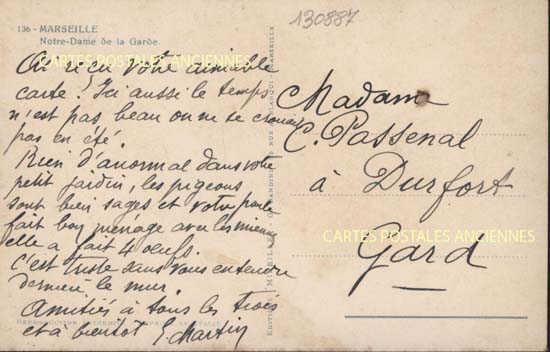 130887
136 - MARSEILLE
Notre-Dame de la Garde.
CARTES POSTALES ANCIENNES
Ai reçu votre aimable
carte! Ici aussi le temps
n'est pas beau on ne se croirait
pas en été.
Rien d'anormal dans votre
petit jardin, les pigeons
sont bien sages et votre poule
fait bon ménage avec les miennes
elle a fait 4 oeufs.
c'est triste sans vous entendre
derrière le mur.
Amitiés à tous les trois
et à bientôt E. Martin
Madame
C. Passenal
à Durfort
CARTES POSTALES ANCIENNES
Gard
REPRODUCTION INTERDITE
MARSEILLE